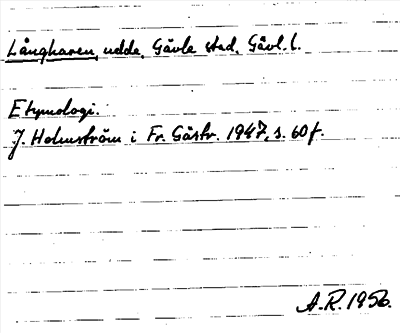 Långharen, udde, Gävle stad, Gävl. l.
Etymologi.
J. Holmström i Fr. Gästr. 1947, s. 60 f.
A.R. 1956.